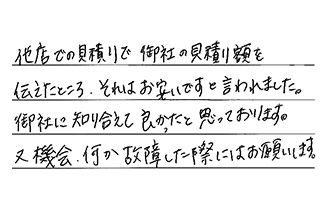 他店での見積りで御社の見積り額を
伝えたところ、それはお安いですと言われました。
御社に知り合えて良かったと思っております。
又機会、何か故障した際にはお願いします。